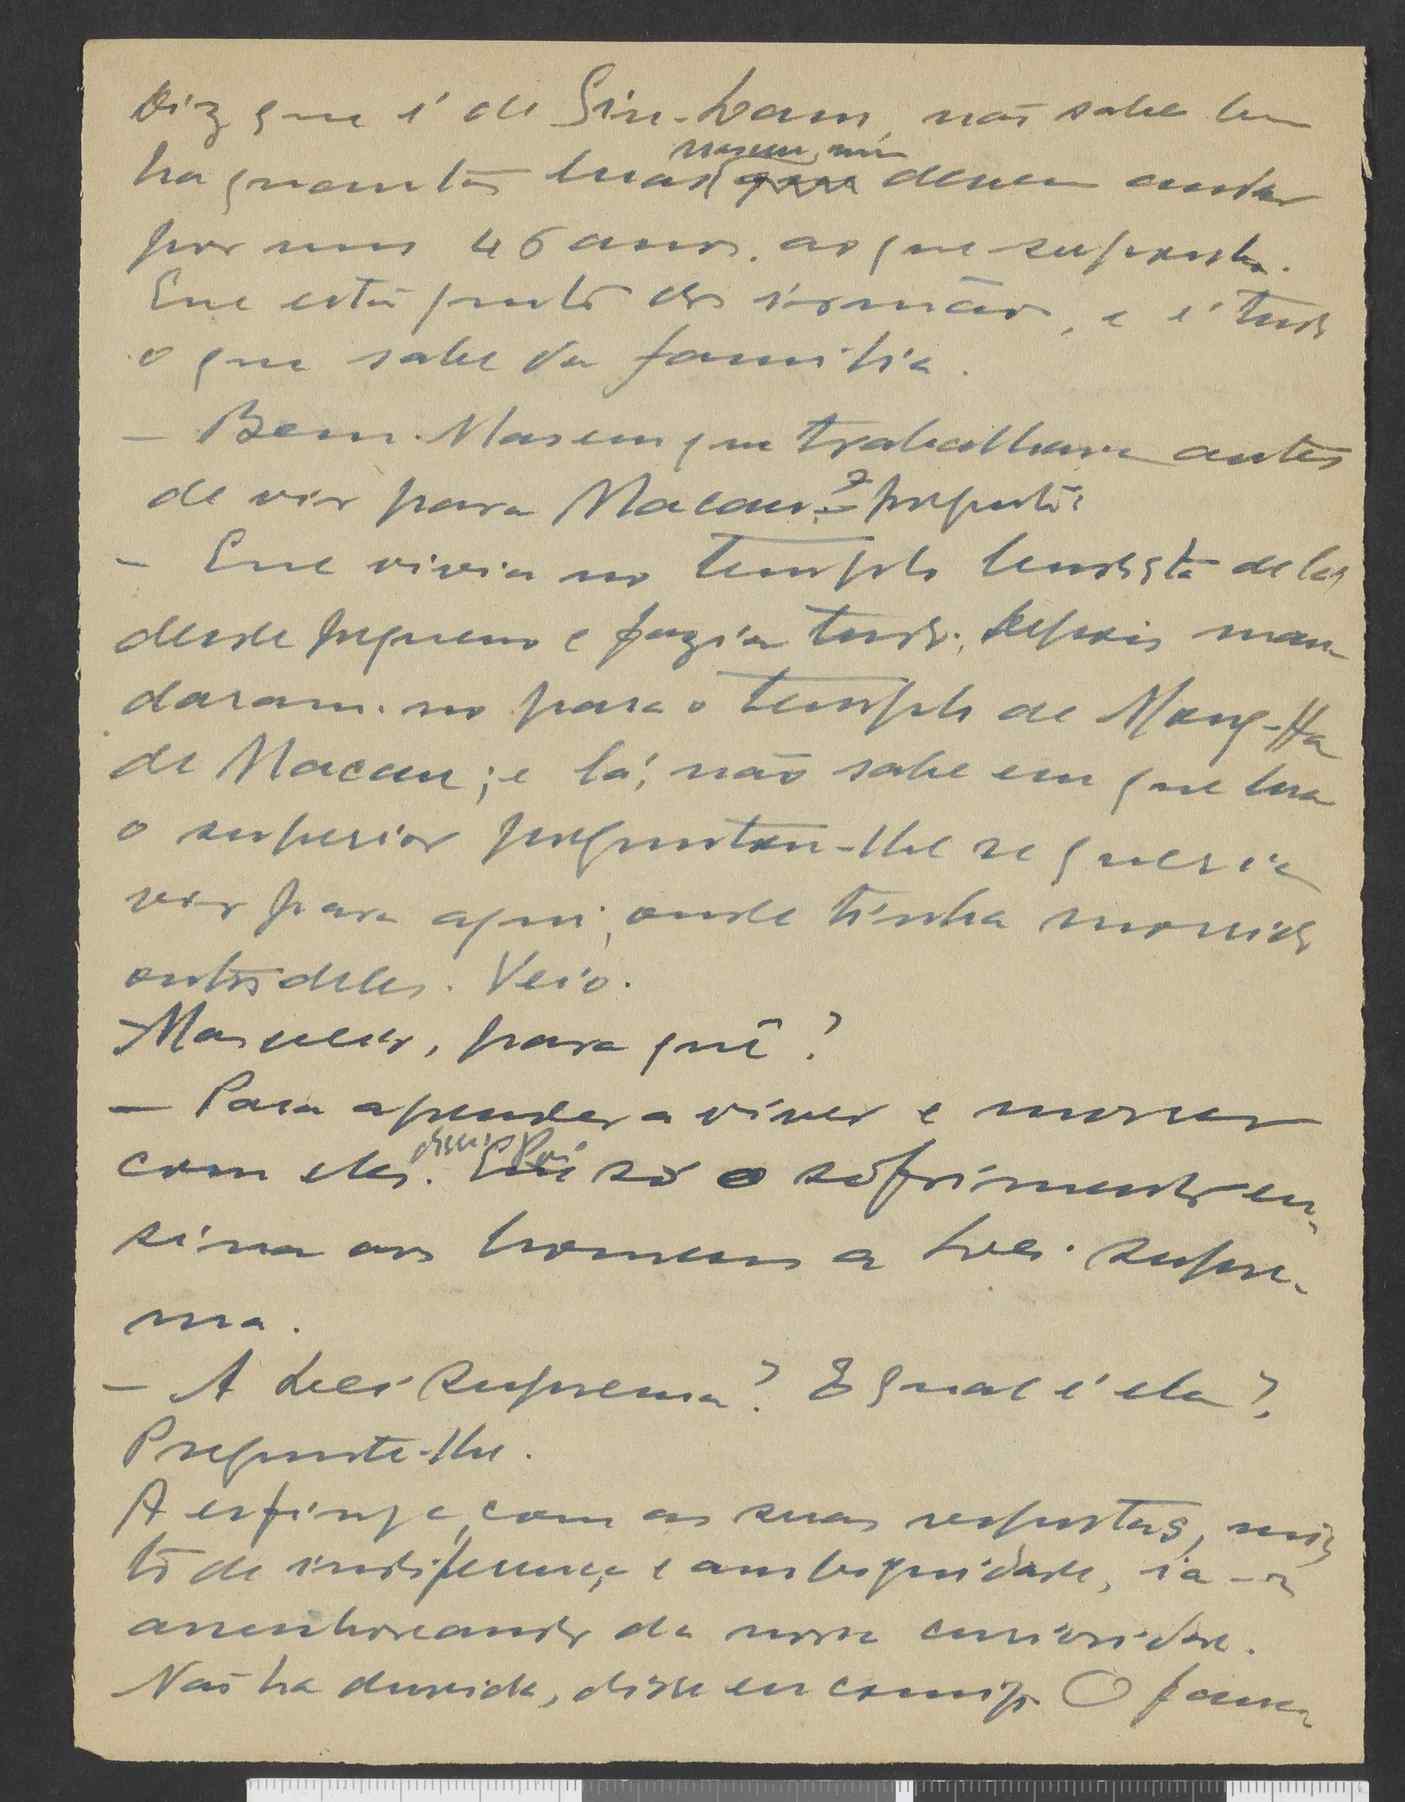 Diz que é de Sin-Lam, não sabe bem
ha quantas luas nasceu, mas devem andar
por uns 46 anos. ao que suponho.
Ele está junto dos irmãos, e é tudo
o que sabe da familia.
— Bem. Mas em que trabalhava antes
de vir para Macau? – preguntei
— Ele vivia no templo budista de lá,
desde pequeno e fazia tudo; depois man
daram-no para o templo de Mong-Ha
de Macau; e lá, não sabe em que lua
o superior preguntou-lhe se queria
vir para aqui, onde tinha morrido
outro deles. Veio.
— Mas veio, para quê?
— Para aprender a viver e morrer
com eles. só o sofrimento en-
sina aos homens a Lei supre-
ma.
— A Lei suprema? E qual é ela?
Pregunte-lhe.
A esfinge, com as suas respostas, mix
to de indiferença e ambiguidade, ia-se
assenhoreando da nossa curiosidade.
Não ha duvida, disse eu comigo. O